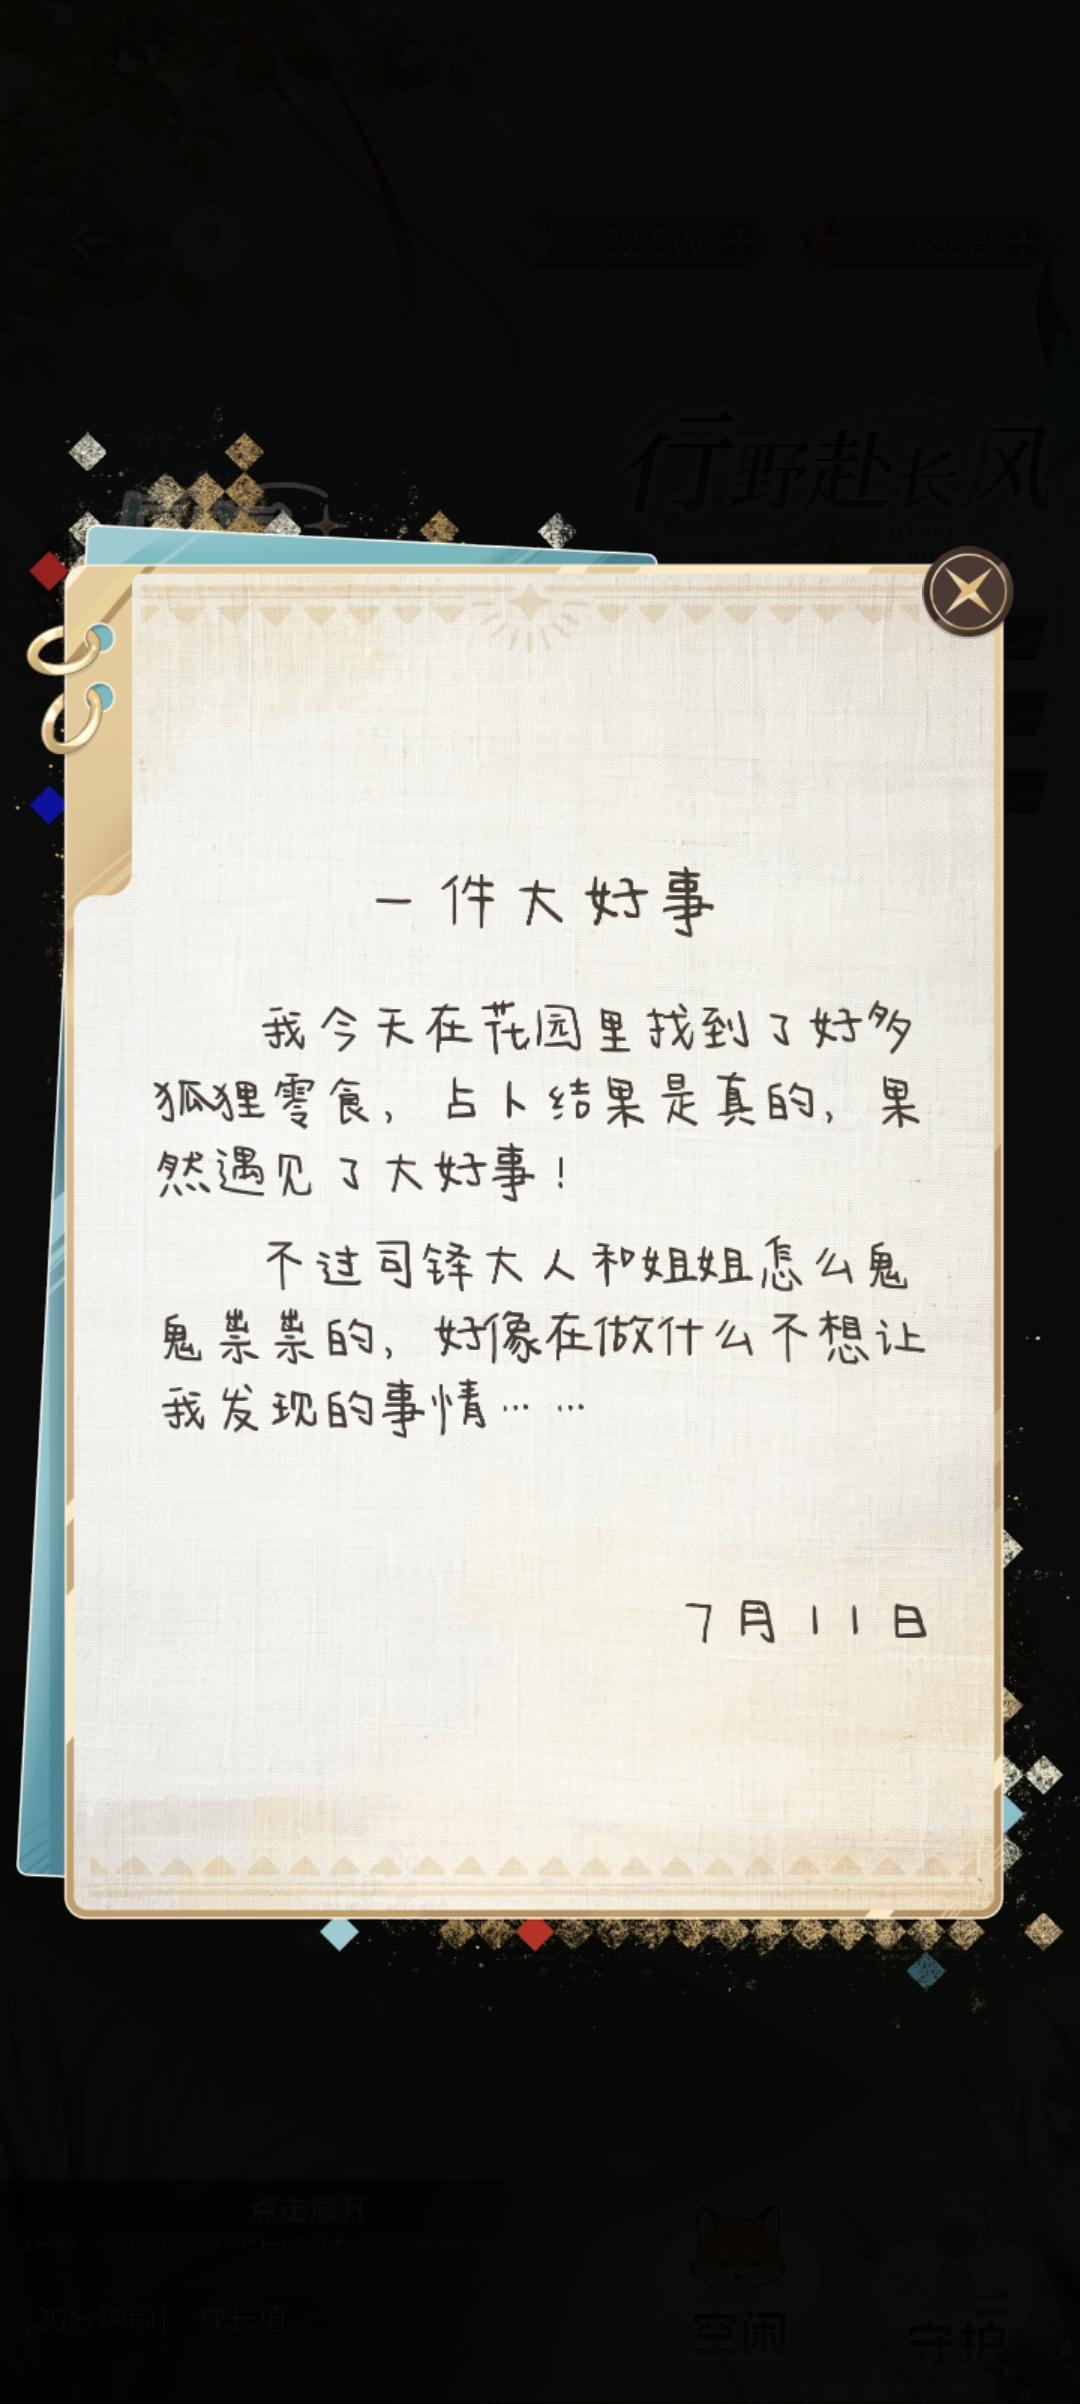 32.5W
1668
行野赴长风
HAPPY
一件大好事
我今天在花园里找到了好多
狐狸零食，占卜结果是真的，果
然遇见了大好事！
不过司铎大人和姐姐怎么鬼
鬼祟祟的，好像在做什么不想让
我发现的事情……
7月11日
点击展开
[20分钟前]：成长值
空闲
守护